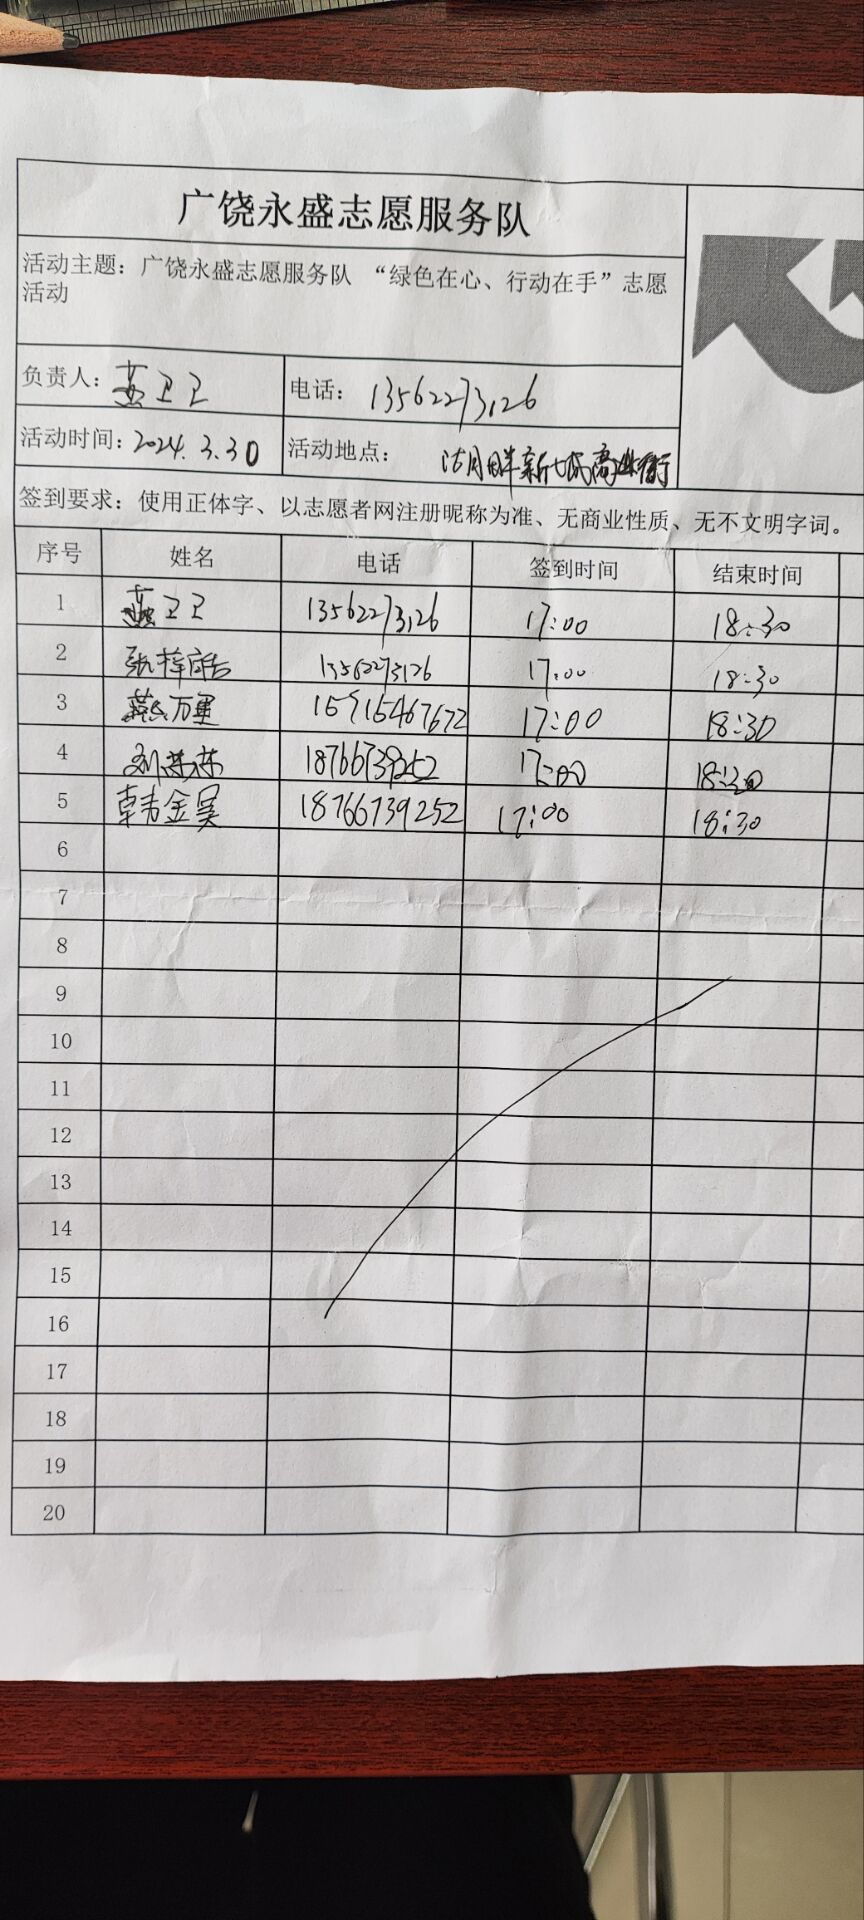 广饶永盛志愿服务队
活动主题：广饶永盛志愿服务队 “绿色在心、行动在手”志愿
活动
负责人：燕卫卫 电话：13562273126
活动时间：2024.3.30 活动地点：月畔新城商业街
签到要求：使用正体字、以志愿者网注册昵称为准、无商业性质、无不文明字词。
序号 姓名 电话 签到时间 结束时间
1 燕卫卫 13562273126 17:00 18:30
2 张梓 13562273126 17:00 18:30
3 燕万里 15715467672 17:00 18:30
4 刘栋栋 18766739252 17:00 18:30
5 韩金昊 18766739252 17:00 18:30
6
7
8
9
10
11
12
13
14
15
16
17
18
19
20